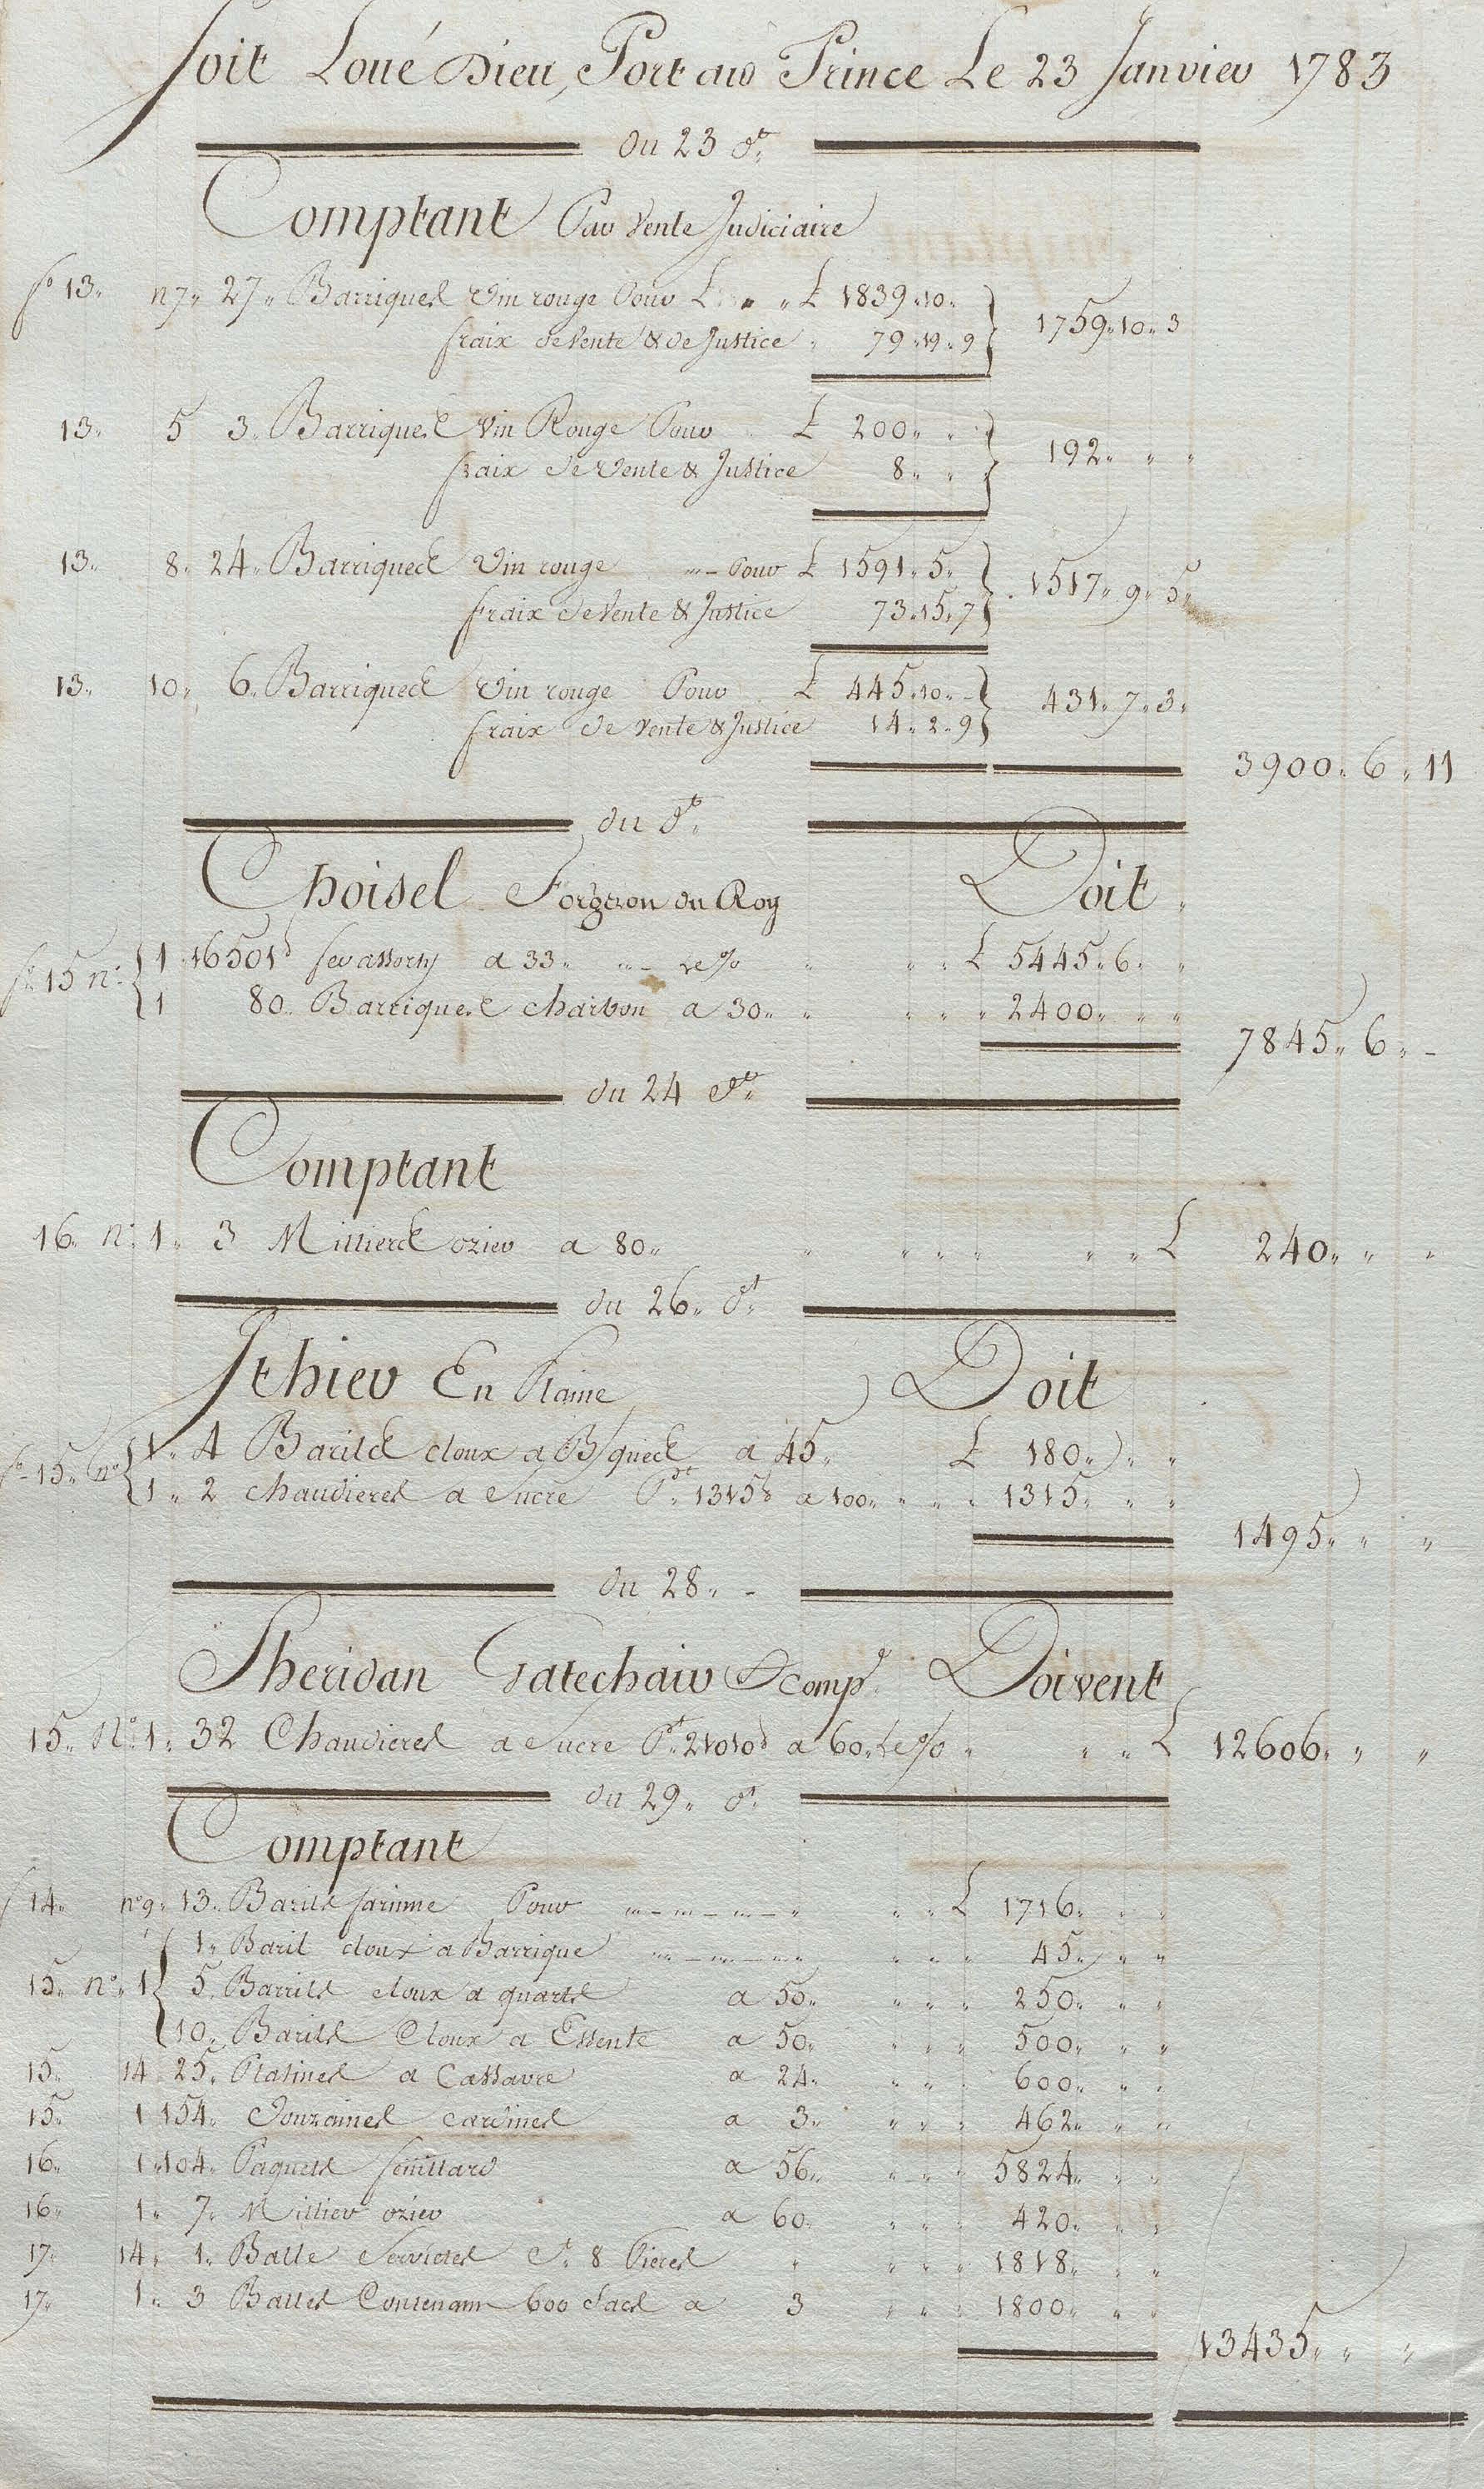 Soit Loué Dieu, Port au Prince Le 23 Janvier 1783
du 23 dt.
Comptant Par Vente Judiciaire
fo 13. n 7. 27. Barriques Vin rouge Pour £ 1839.10.
fraix de Vente & de Justice 79.19.9 } 1759.10.3
13. 5 3. Barriques Vin Rouge Pour £ 200.
fraix de Vente & Justice 8. } 192.
13. 8. 24. Barriques Vin rouge Pour £ 1591.5.
fraix de Vente & Justice 73.15.7 } 1517.9.5.
13. 10. 6. Barriques Vin rouge Pour £ 445.10.
fraix de Vente & Justice 14.2.9 } 431.7.3.
3900.6.11
du dt.
Choisel Forgeron du Roy Doit
fo 15 no. { 1 16501 d fer assorty a 33. Le % £ 5445.6.
1 80. Barriques charbon a 30. 2400.
7845.6.
du 24 dt.
Comptant
16. no. 1. 3 Milliers ozier a 80. £ 240.
du 26. dt.
Ithier En Plaine Doit
fo 15. no { 1. 4 Barils cloux a B/ques a 45. £ 180.
1. 2 chaudieres a Sucre Pt. 1315 d a 100. 1315.
1495.
du 28.
Sheridan Gatechair & comp.e Doivent
15. No. 1. 32 Chaudieres a Sucre Pt. 21010 d a 60. Le % £ 12606.
du 29. dt.
Comptant
f 14. no 9. 13. Barils farinne Pour £ 1716.
1. Baril cloux a Barrique 45.
15. no. 1 { 5. Barrils cloux a quarts a 50. 250.
10. Barils Cloux a Essente a 50. 500.
15. 14. 25. Platines a Cassavre a 24. 600.
15. 1 154. Douzaines sardines a 3. 462.
16. 1. 104. Paquets feuillard a 56. 5824.
16. 1. 7. Millier ozier a 60. 420.
17. 14. 1. Balle Serviettes Ct. 8 Pieces 1818.
17. 1. 3 Balles Contenant 600 Sacs a 3 1800.
13435.